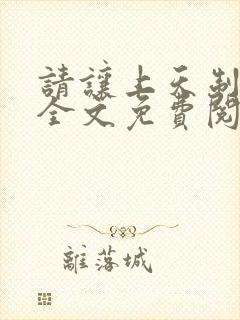 請讓上天制
全文免費閱
離落城